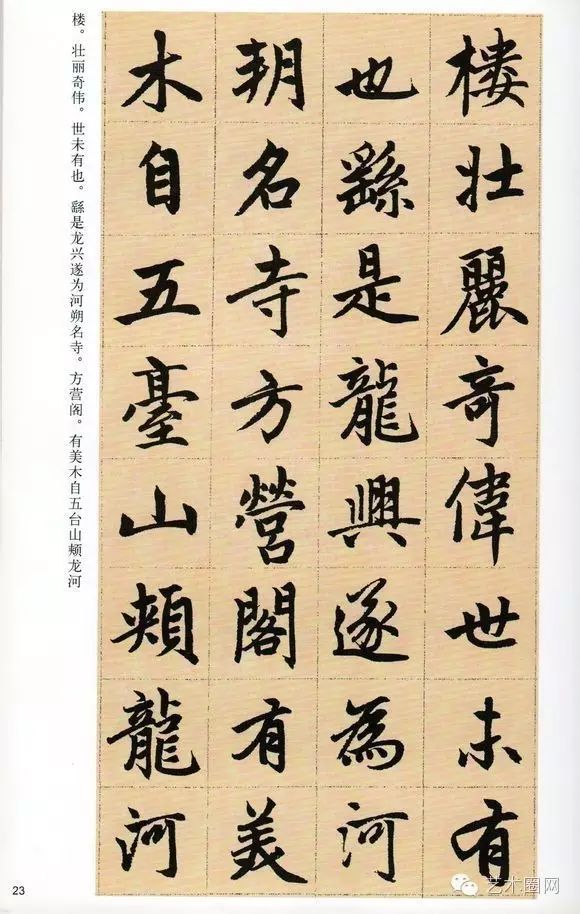 樓壯麗奇偉世未有
也繇是龍興遂為河
朔名寺方營閣有美
木自五臺山頰龍河
楼。壮丽奇伟。世未有也。繇是龙兴遂为河朔名寺。方营阁。有美木自五台山颊龙河
23
艺术圈网